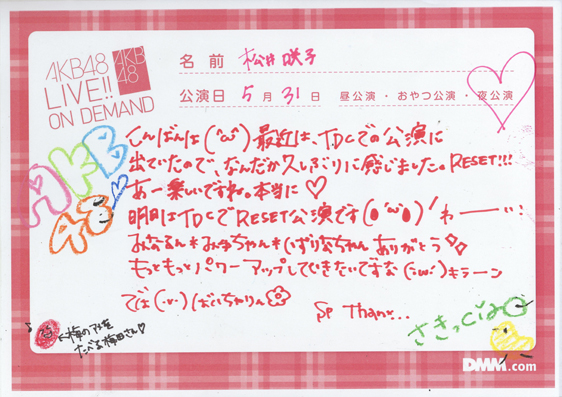 AKB48
LIVE!!
ON DEMAND
AKB
48
名前 松井咲子
公演日 5月31日 昼公演・おやつ公演・夜公演
AKB
48
こんばんは(^ω^)最近は、TDCでの公演に
出ていたので、なんだか久しぶりに感じました。RESET!!!
あー楽しいですね。本当に♡
明日はTDCでRESET公演です わーー
みなるん*みゆちゃん*いずりなちゃん ありがとう
もっともっとパワーアップしていきたいですな(・ω・)キラーン
では(・v・)ばいちゃりん
Sp Thanx...
さきっcia
♪
←梅のアメを
たべる梅田さん♡
DMM.com